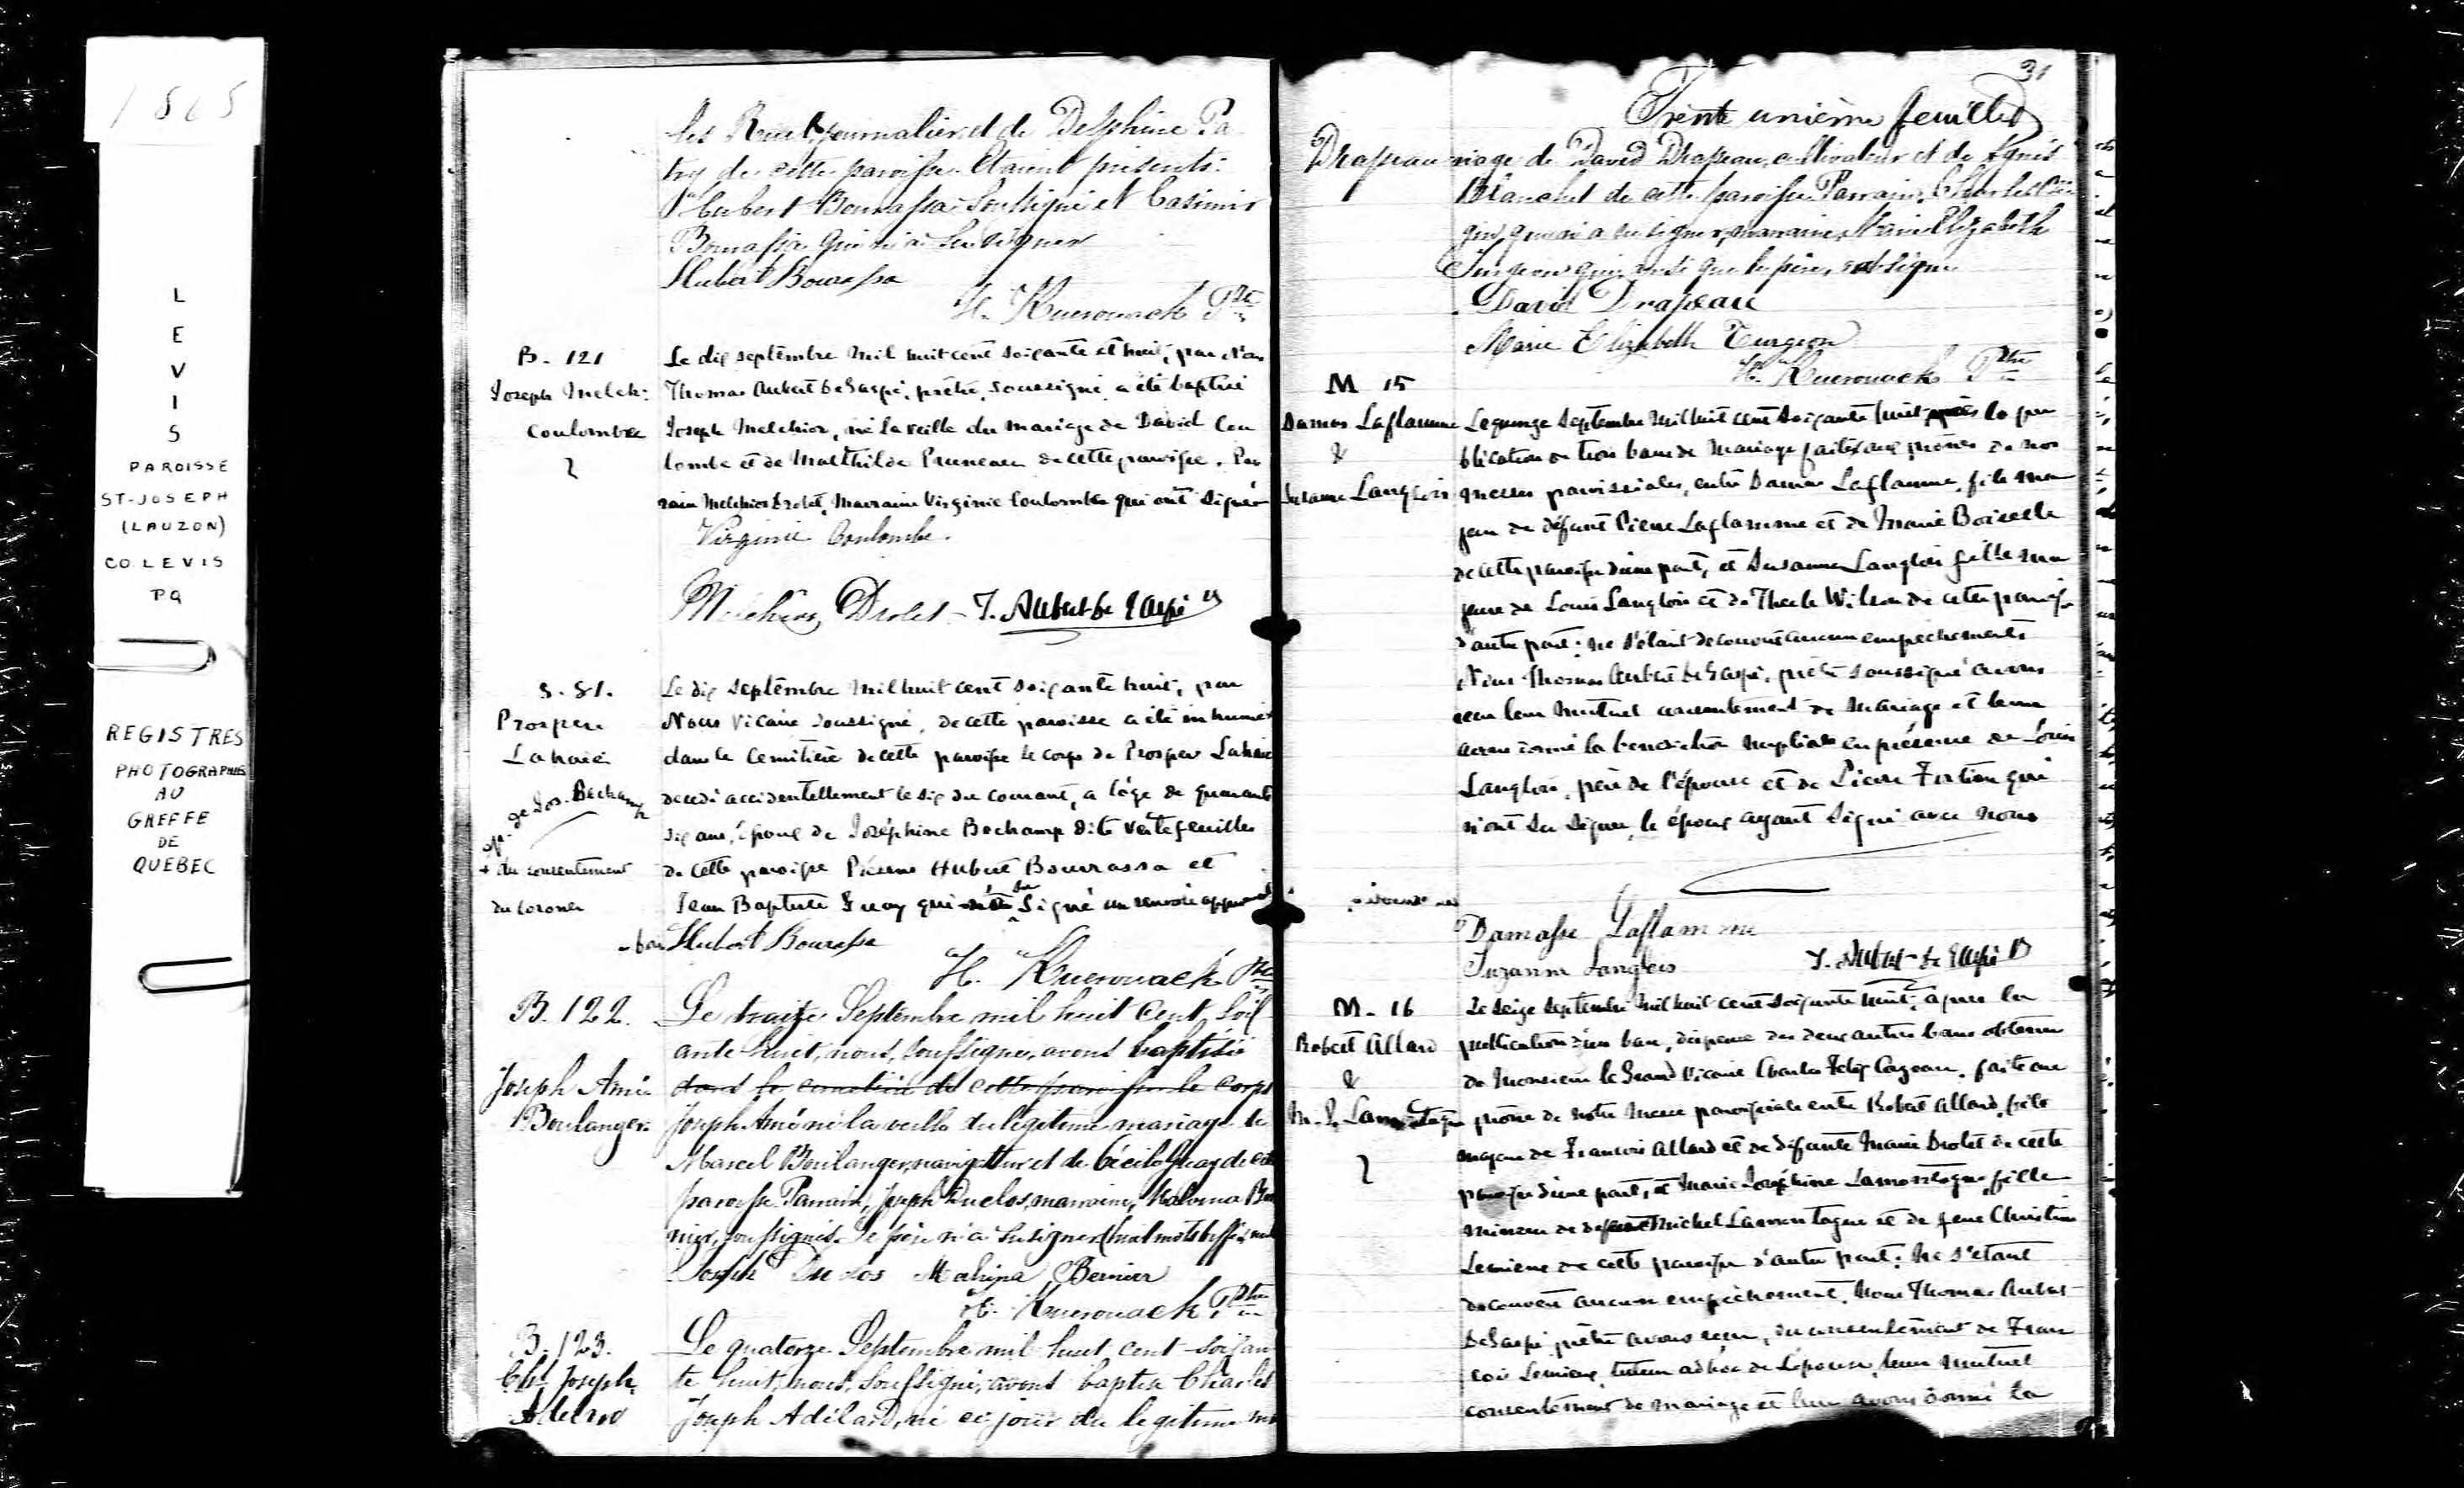 1865
L
E
V
I
S
PAROISSE
ST-JOSEPH
(LAUZON)
CO. LEVIS
PQ
REGISTRES
PHOTOGRAPHIÉS
AU
GREFFE
DE
QUEBEC
les Ruel, journalier et de Delphine Pa
try de cette paroisse. Etaient présents:
Hubert Bourassa Soussigné et Casimir
Bourassa qui n'a su signer
Hubert Bourassa
H. Kuerouack Ptre
B. 121
Joseph Melch:
Coulombe
Le dix septembre mil huit cent soixante et huit, par Nous
Thomas Aubert de Gaspé, prêtre, soussigné a été baptisé
Joseph Melchior, né la veille du mariage de David Cou
lombe et de Malthilde Pruneau de cette paroisse. Par
rain Melchior Drolet, Marraine Virginie Coulombe qui ont signé
Virginie Coulombe.
Melchior Drolet - T. Aubert de Gaspé
S. 81.
Prosper
Lahaie
ép. de Jos. Bechamp
+ du consentement
du Coroner
Le dix septembre mil huit cent soixante huit, par
Nous Vicaire soussigné, de cette paroisse a été inhumé
dans le cemitière de cette paroisse le corps de Prosper Lahaie
decedé accidentellement le six du courant, a l'âge de quarante
six ans, époux de Joséphine Bechamp dite Vertefeuille
de cette paroisse Présens Hubert Bourassa et
Jean Baptiste Guay qui su signé un renvoi approuvé
bon Hubert Bourassa
H. Kuerouack Ptre
B. 122.
Joseph Aimé
Boulanger.
Le treize Septembre mil huit cent soix
ante huit, nous, soussigné, avons baptisé
dans le cimetière de cette paroisse le corps
Joseph Aimé né la veille du légitime mariage de
Marcel Boulanger, navigateur et de Cécile Guay de cette
paroisse. Parrain, Joseph Duclos, marraine, Malvina Ber
nier, soussignés. Le père n'a su signer (huit mots biffés nuls
Joseph Duclos Malvina Bernier
H. Kuerouack Ptre
B. 123.
Chs Joseph
Adelard
Le quatorze Septembre mil huit cent soixan
te huit, nous, soussigné, avons baptisé Charles
Joseph Adélard, né ce jour du legitime ma
31
Trente unième feuillet
Drapeau
riage de David Drapeau, cultivateur et de Agnès
Blanchet de cette paroisse. Parrain, Charles
qui a su signer, marraine, Marie Elizabeth
Turgeon qui, ainsi que le père, ont signé
David Drapeau
Marie Elizabeth Turgeon
H. Kuerouack Ptre
M 15
Damas Laflamme
&
Susanne Langlois
Le quinze Septembre mil huit cent soixante huit après la pu
blication de trois bans de mariage faite aux prônes de nos
messes paroissiales, entre Damas Laflamme, fils ma
jeur de défunt Pierre Laflamme et de Marie Boiselle
de cette paroisse d'une part, et Susanne Langlois fille ma
jeure de Louis Langlois et de Thecle Wilson de cette paroisse
d'autre part; ne s'étant decouvert aucun empêchements
Nous Thomas Aubert de Gaspé, prêtre soussigné avons
recu leur mutuel consentement de mariage et leur
avons donné la benediction nuptiale en présence de Louis
Langlois, père de l'épouse et de Pierre Fortier qui
n'ont su signer, le époux ayant signé avec nous
Damasse Laflamme
Suzanne Langlois T. Aubert de Gaspé
M. 16
Robert Allard
&
M. J. Lamontagne
Le seize septembre mil huit cent soixante huit, apres la
publication d'un ban, dispense des deux autres bans obtenue
de Monsieur le Grand Vicaire Charles Felix Cazeau, faite au
prône de notre messe paroissiale entre Robert Allard, fils
majeur de Francois Allard et de défunte Marie Drolet de cette
paroisse d'une part, et Marie Joséphine Lamontagne fille
mineure de defunt Michel Lamontagne et de feue Christine
Lemieux de cette paroisse d'autre part; Ne s'étant
decouvert aucun empêchement, Nous Thomas Aubert
DeGaspé prêtre avons recu, du consentement de Fran
cois Lemieux, tuteur adhoc de l'épouse, leur mutuel
consentement de mariage et leur avons donné la